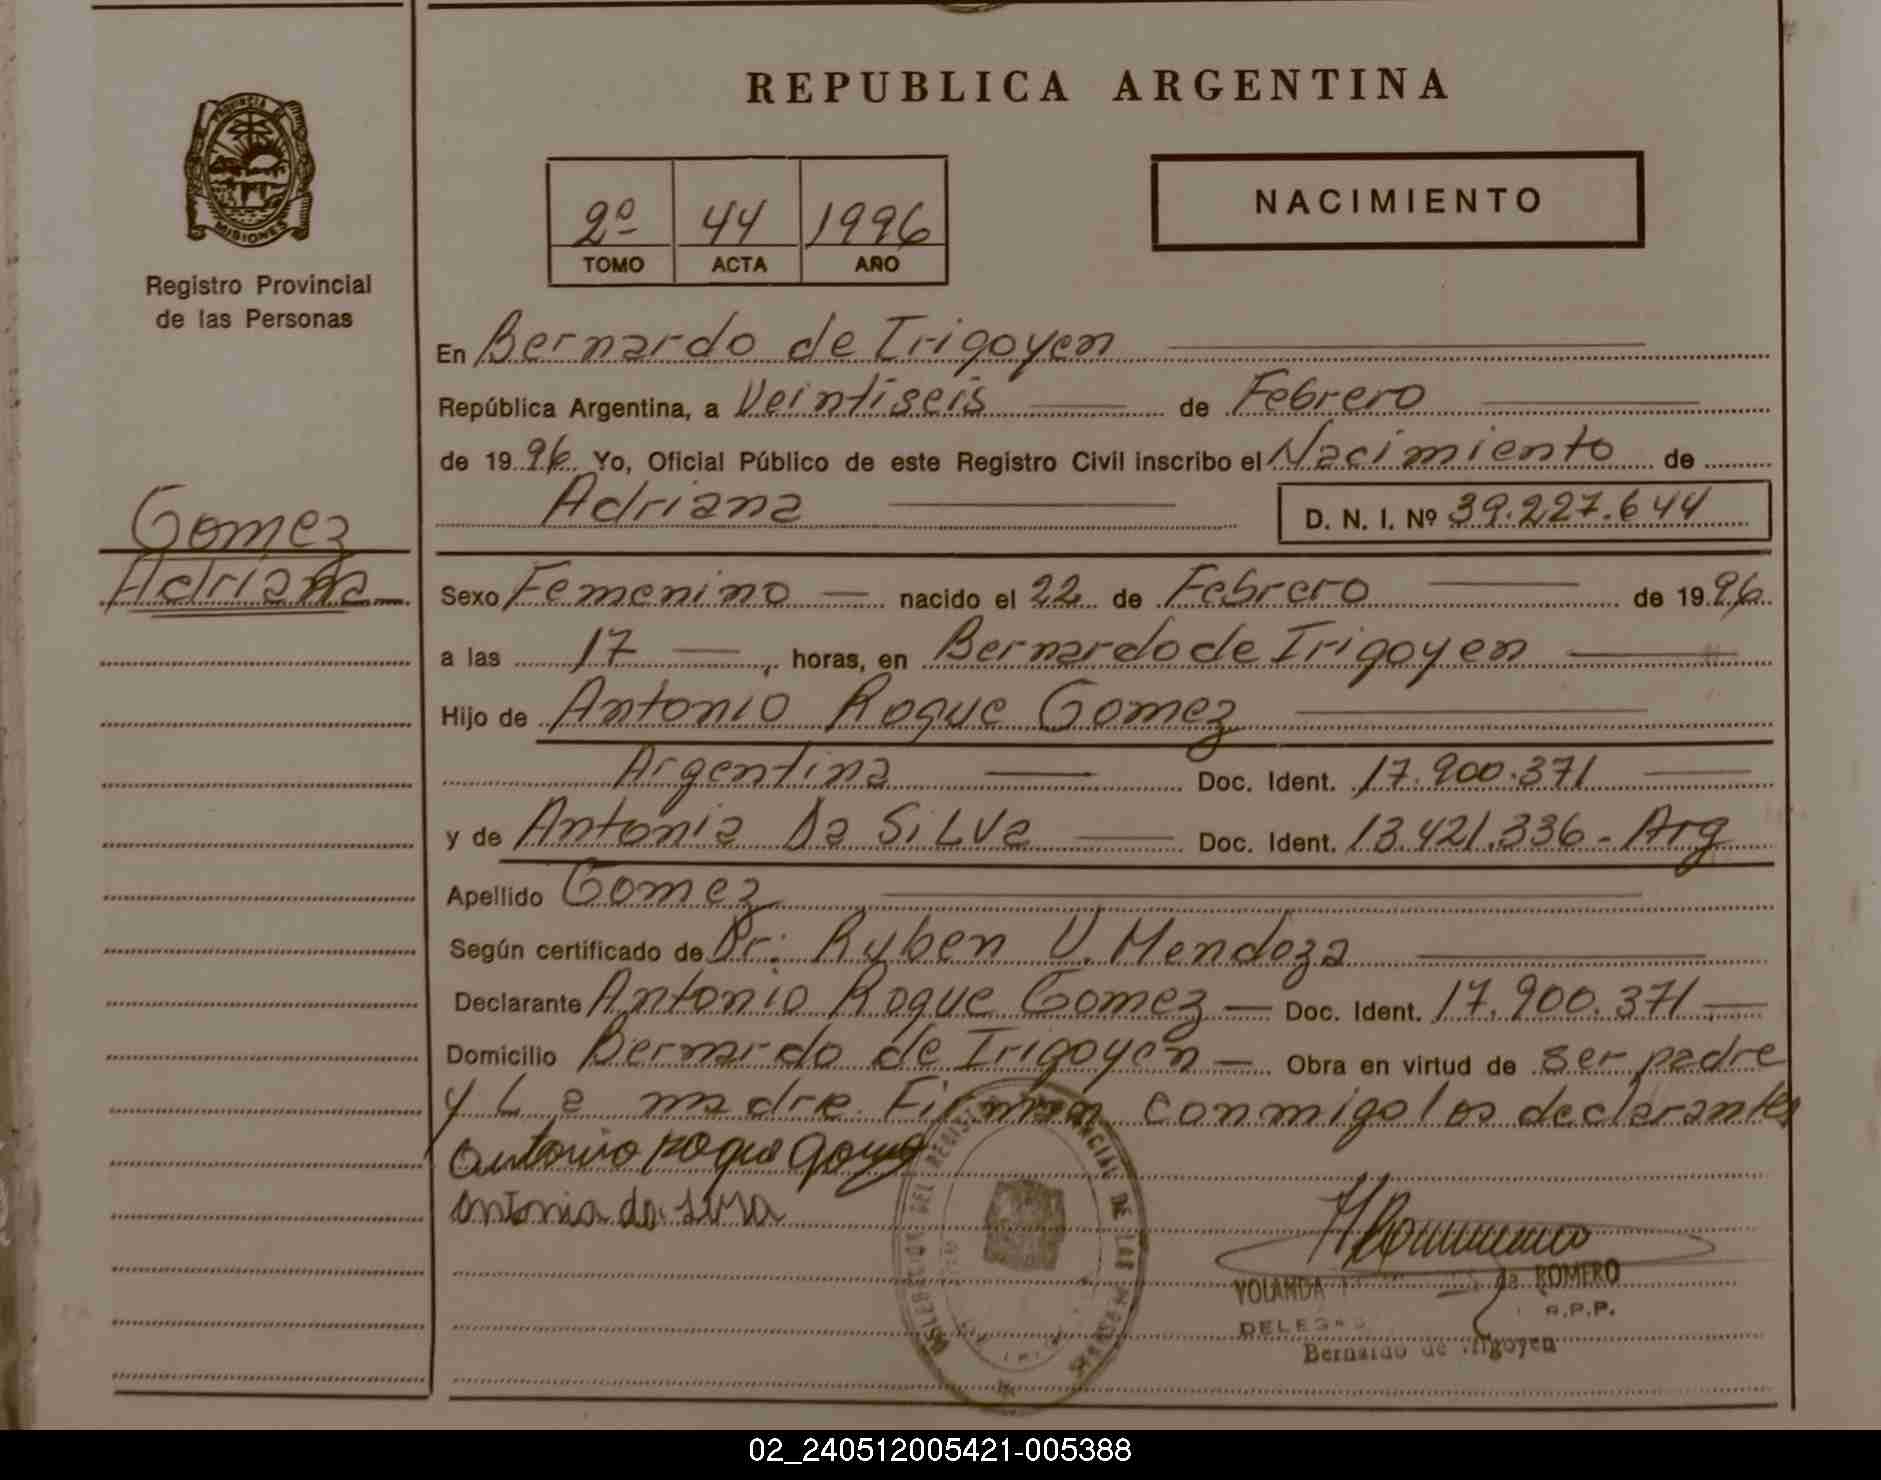 REPUBLICA ARGENTINA
PROVINCIA DE
MISIONES
Registro Provincial
de las Personas
2º 44 1996
TOMO ACTA AÑO
NACIMIENTO
Gomez
Adriana
En Bernardo de Irigoyen
República Argentina, a Veintiseis de Febrero
de 1996 Yo, Oficial Público de este Registro Civil inscribo el Nacimiento de
Adriana D. N. I. Nº 39.227.644
Sexo Femenino nacido el 22 de Febrero de 1996
a las 17 horas, en Bernardo de Irigoyen
Hijo de Antonio Roque Gomez
Argentina Doc. Ident. 17.900.371
y de Antonia Da SiLVa Doc. Ident. 13.421.336 - Arg
Apellido Gomez
Según certificado de Dr: Ruben V. Mendoza
Declarante Antonio Roque Gomez Doc. Ident. 17.900.371
Domicilio Bernardo de Irigoyen Obra en virtud de ser padre
y La madre. Firman conmigo los declarantes
antonio roque gomez
antonia da silva
DEL REGISTRO PROVINCIAL DE LAS PERSONAS
YOLANDA de ROMERO
R.P.P.
Bernardo de Irigoyen
02_240512005421-005388